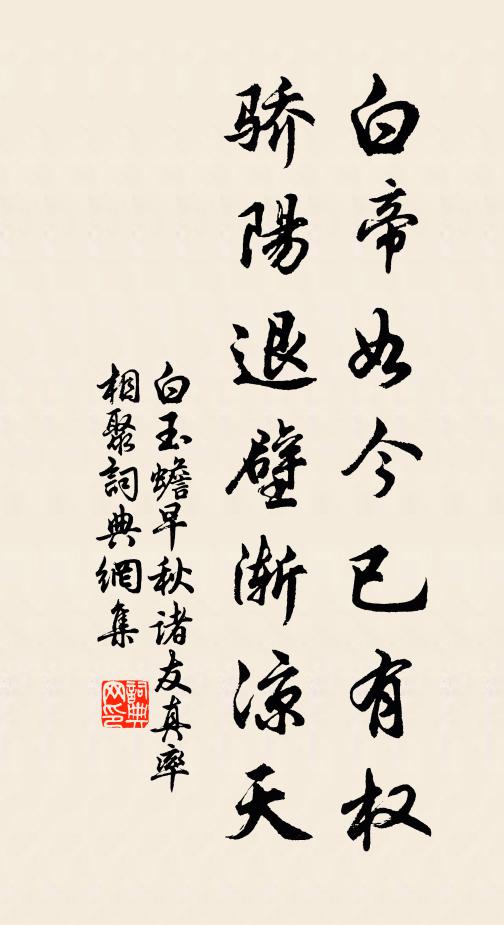 白帝如今已有权
骄陽退壁渐凉天
白玉蟾早秋诸友真率
相聚詞典網集
詞典网印